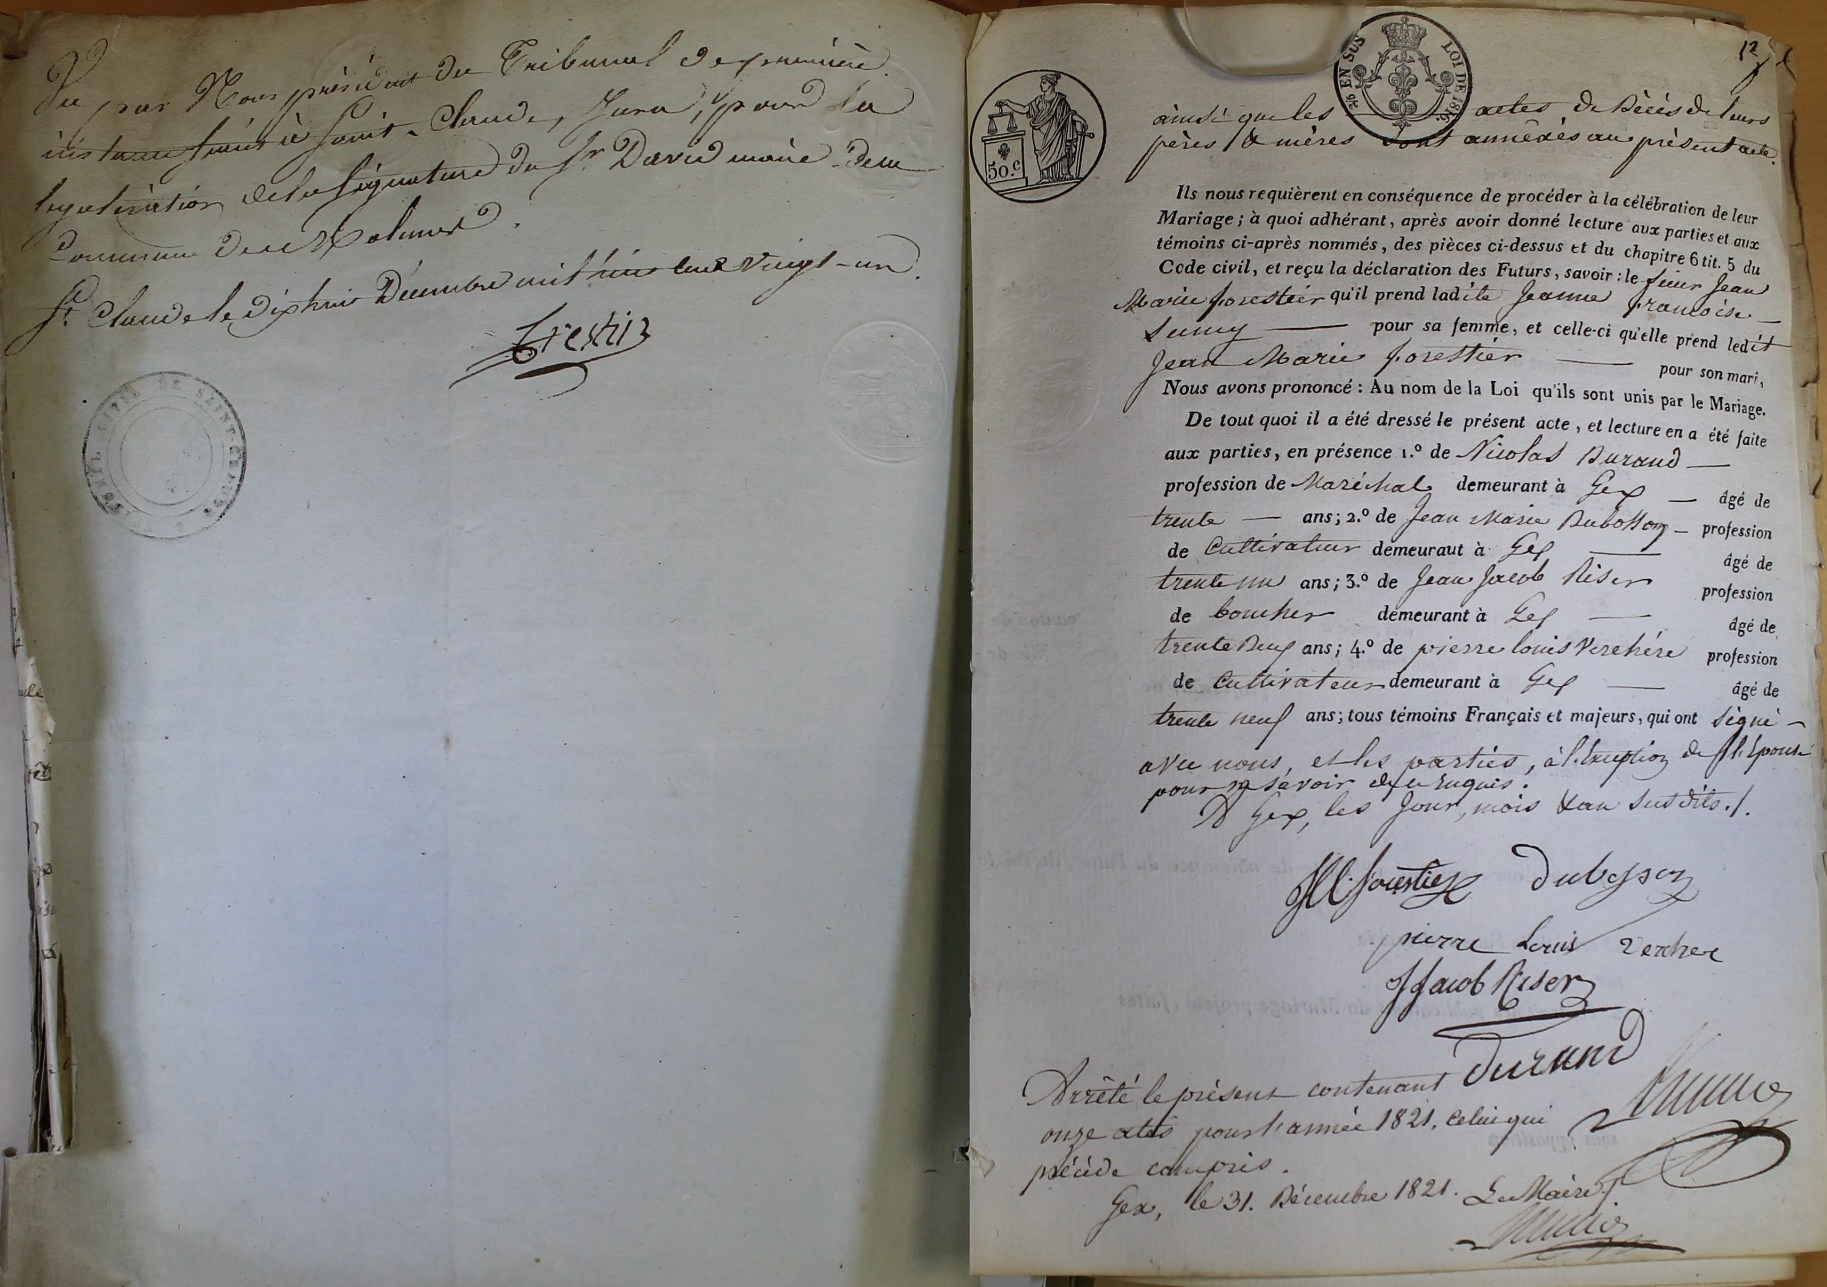 Vu par Nous président du Tribunal de première
instance séant à Saint-Claude, Jura, pour la
légalisation de la signature du Sr David maire de la
Commune des Molunes.
St Claude le dix huit Décembre mil huit cent vingt-un.
Trestin
TRIBUNAL CIVIL DE SAINT-CLAUDE
ainsi que les actes de Décès de leurs
pères & mères sont annéxés au présent acte.
EN SUS LOI DE 1816.
50.c
Ils nous requièrent en conséquence de procéder à la célébration de leur
Mariage ; à quoi adhérant, après avoir donné lecture aux parties et aux
témoins ci-après nommés, des pièces ci-dessus et du chapitre 6 tit. 5 du
Code civil, et reçu la déclaration des Futurs, savoir : le sieur Jean
Marie forestier qu'il prend ladite Jeanne francoise
pour sa femme, et celle-ci qu'elle prend ledit
Jean Marie forestier — pour son mari,
Nous avons prononcé : Au nom de la Loi qu'ils sont unis par le Mariage.
De tout quoi il a été dressé le présent acte, et lecture en a été faite
aux parties, en présence 1.º de Nicolas Durand —
profession de Maréchal demeurant à Gex — âgé de
trente — ans ; 2.º de Jean Marie Dubosson — profession
de Cultivateur demeuraut à Gex — âgé de
trente un ans ; 3.º de Jean Jacob Riser profession
de boucher demeurant à Gex — âgé de
trente Deux ans ; 4.º de pierre louis Verchére profession
de Cultivateur demeurant à Gex — âgé de
trente neuf ans ; tous témoins Français et majeurs, qui ont signé —
avec nous, et les parties, à l'Exception de l'Epouse
pour ne savoir de ce Enquis.
A Gex, les Jour, mois & an susdits ./.
JM forestier Dubosson
pierre Louis Vercher
JJacob Riser
Durand
Arrêté le présent contenant
onze actes pour l'année 1821. celui qui
précède compris.
Gex, le 31. Décembre 1821. Le Maire